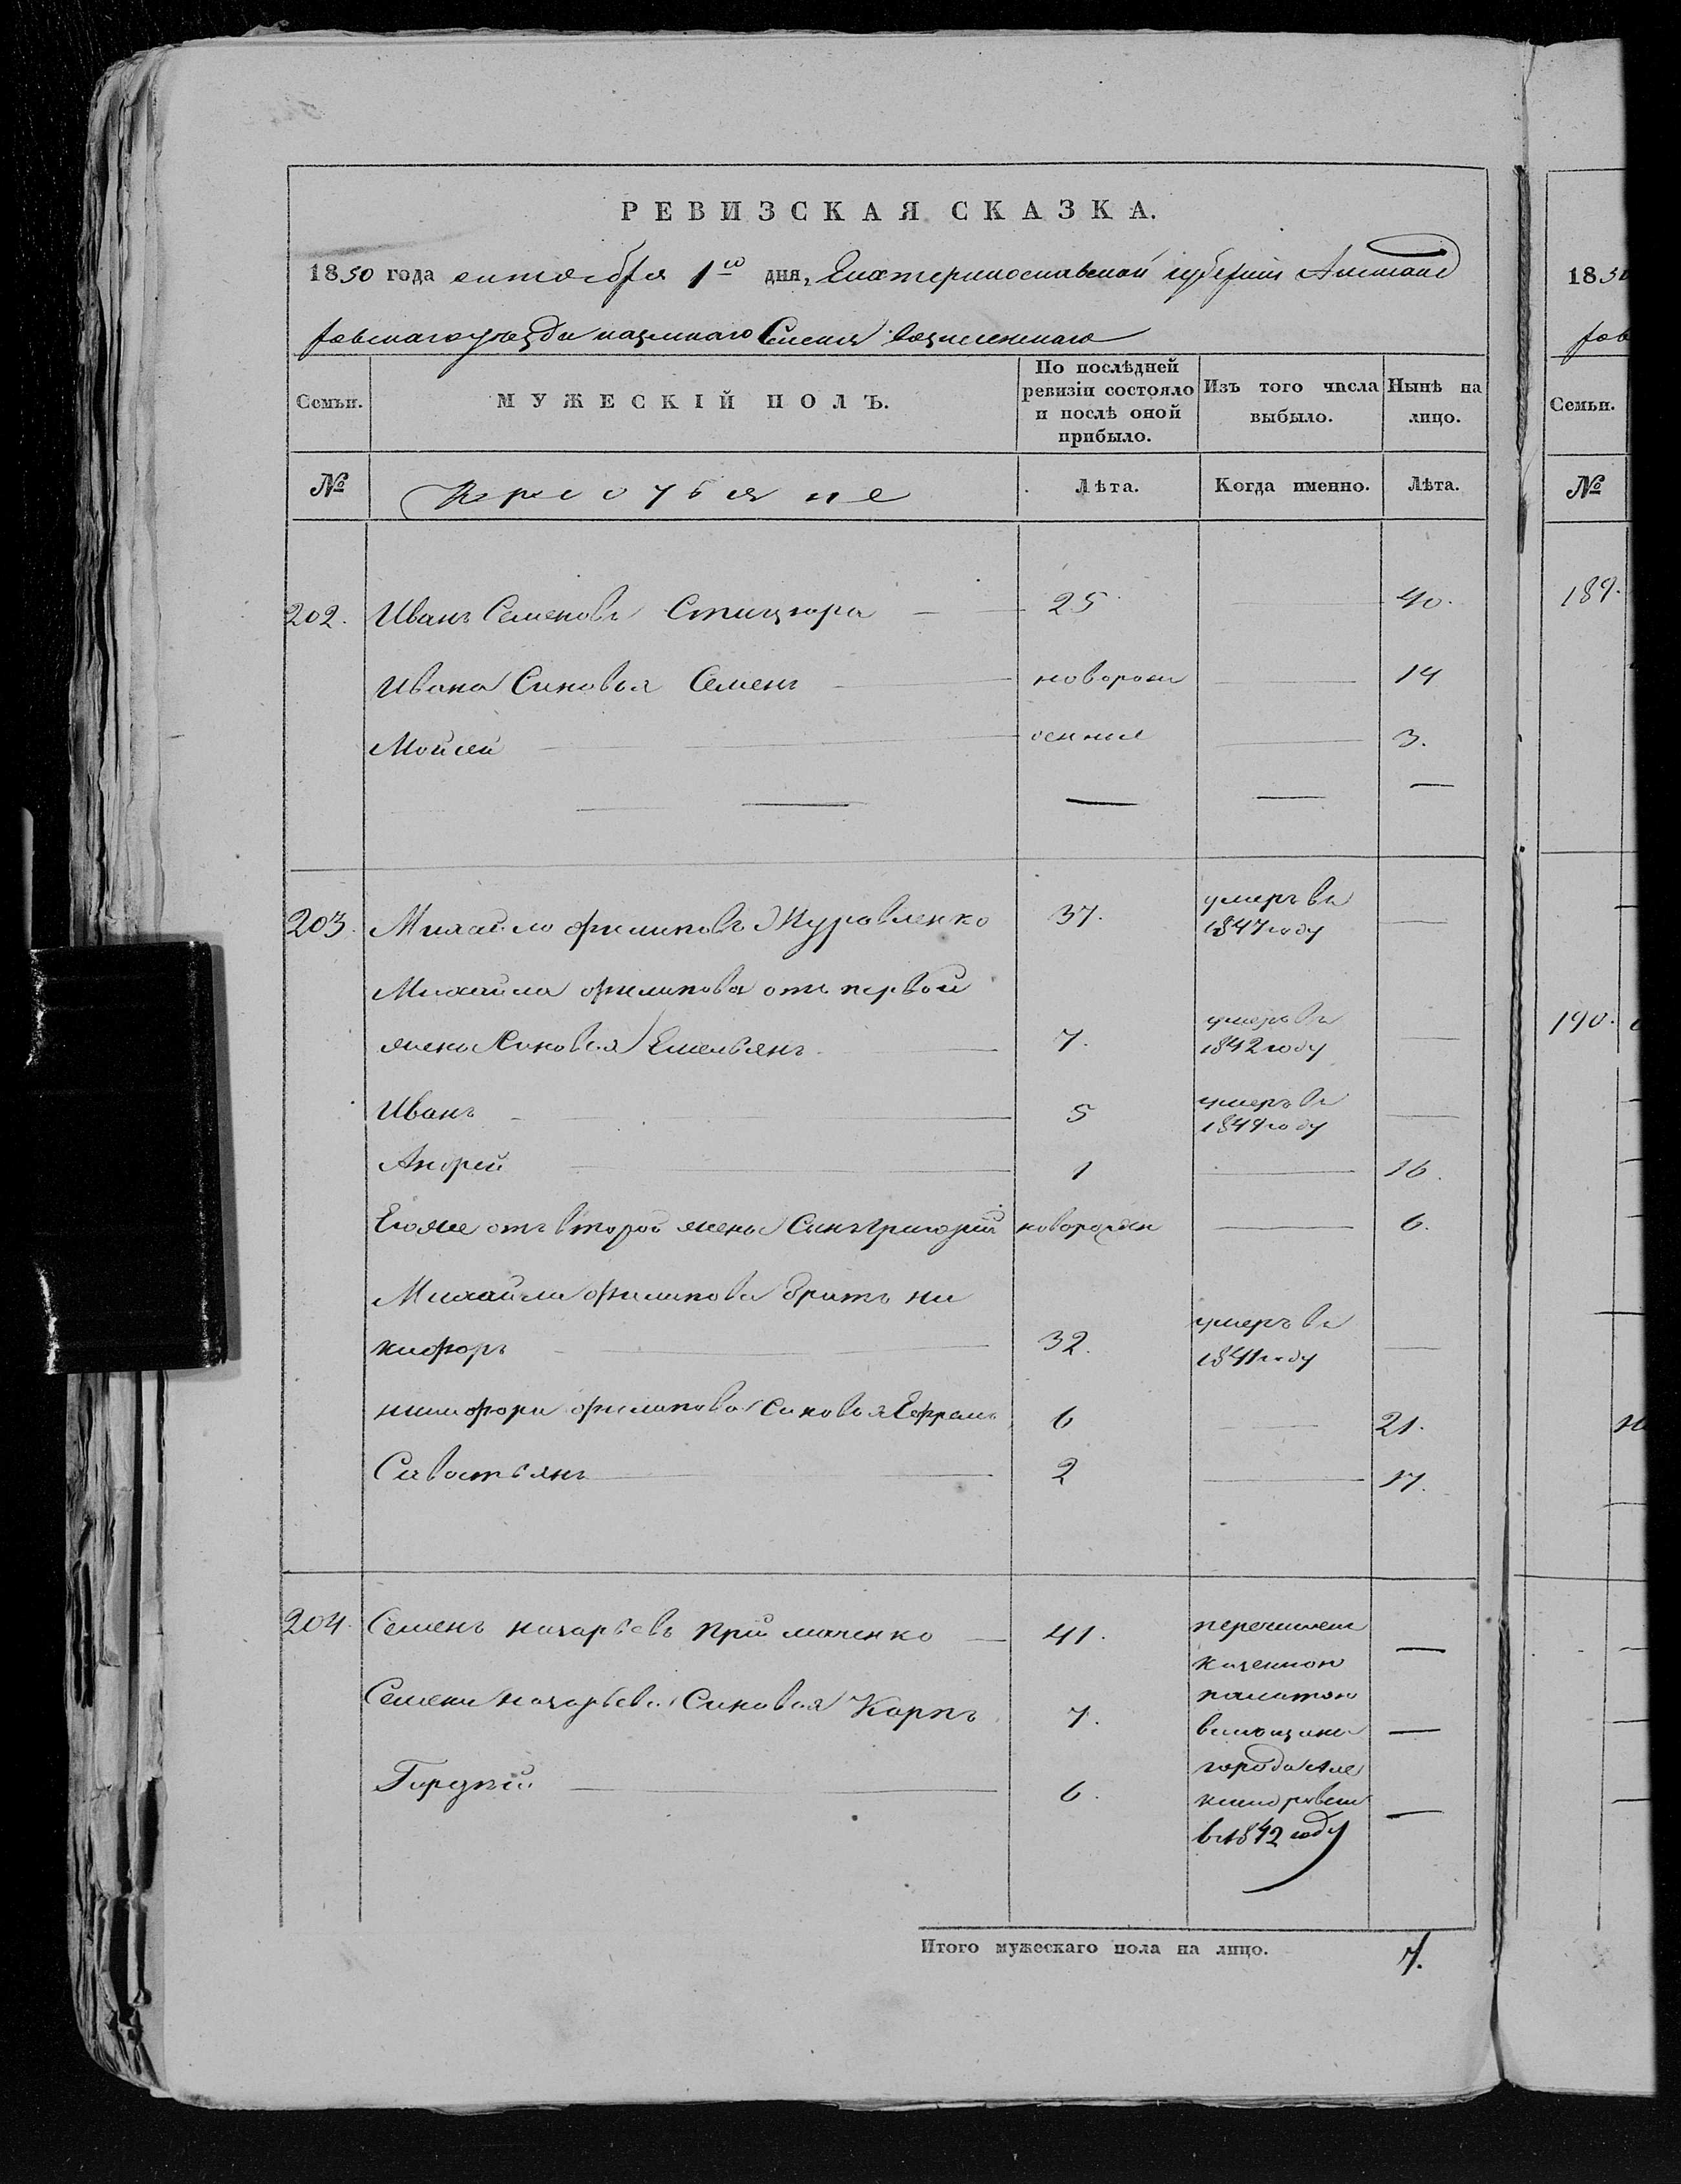 РЕВИЗСКАЯ СКАЗКА.
1850 года октября 1го дня, Екатеринославской губернии Александ
ровскаго уезда казеннаго Селения вознесенскаго
Семьи. МУЖЕСКІЙ ПОЛЪ. По послѣдней ревизіи состояло и послѣ оной прибыло. Изъ того числа выбыло. Нынѣ на лицо.
№ Крестьяне Лѣта. Когда именно. Лѣта.
202. Иванъ Семеновъ 25 40.
Ивана Синовья Семенъ новорож 14
Мойсей 3.
203. Михайло филиповъ Журавленко 37. умеръ въ 1847 году
Михайла филипова отъ первой
жены Синовья Емельянъ 7. умеръ въ 1842 году
Иванъ 5 умеръ въ 1844 году
Андрей 1 16.
Егоже отъ второй жены Синъ григорий новорожден 6.
Михайла филипова братъ ни
кифоръ 32. умеръ въ 1841 году
никифора филипова Синовья Ефремъ 6 21.
Савостьянъ 2 17.
204. Семенъ назарьевъ Приймаченко 41. перечислен
казенною
Семена назарьева Синовья Карпъ 7. палатою
города Але
Гордѣй 6. ксандровска
въ 1842 году
Итого мужескаго пола на лицо. 7.
1850
ров
Семьи.
№
189.
190.